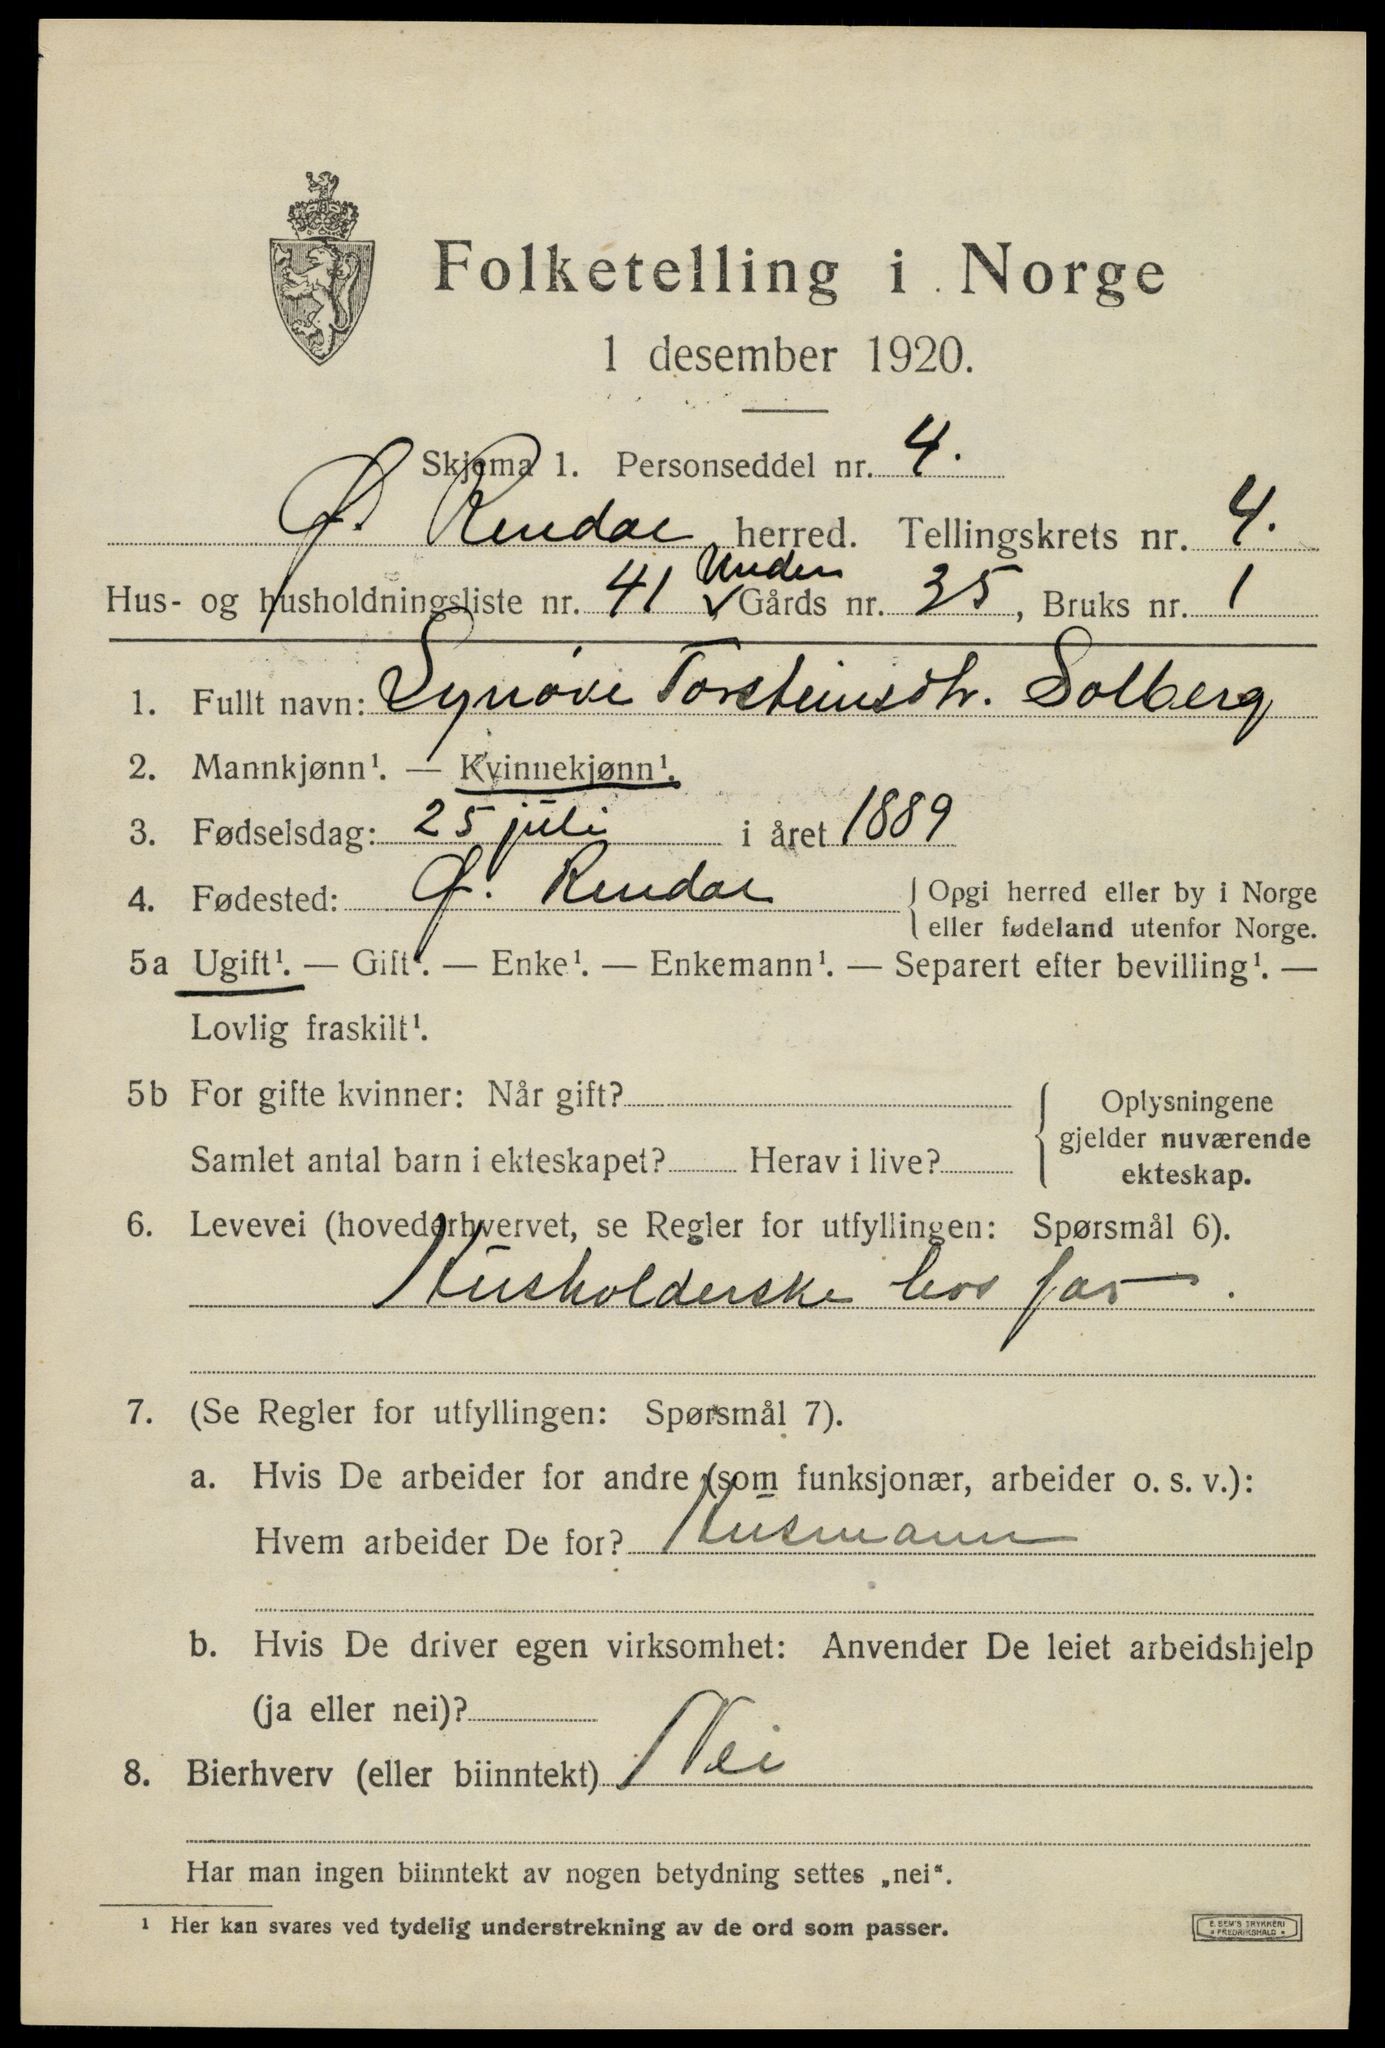 Folketelling i Norge
1 desember 1920.
Skjema 1. Personseddel nr. 4.
Ø. Rendal herred. Tellingskrets nr. 4.
Under
Hus- og husholdningsliste nr. 41 ✓ Gårds nr. 35, Bruks nr. 1
1. Fullt navn: Synöve Torsteinsdtr. Solberg
2. Mannkjønn¹. — Kvinnekjønn¹.
3. Fødselsdag: 25 juli i året 1889
4. Fødested: Ø. Rendal { Opgi herred eller by i Norge
eller fødeland utenfor Norge.
5a Ugift¹. — Gift¹. — Enke¹. — Enkemann¹. — Separert efter bevilling¹. —
Lovlig fraskilt¹.
5b For gifte kvinner: Når gift? { Oplysningene
gjelder nuværende
Samlet antal barn i ekteskapet? Herav i live? ekteskap.
6. Levevei (hovederhvervet, se Regler for utfyllingen: Spørsmål 6).
Husholderske hos far.
7. (Se Regler for utfyllingen: Spørsmål 7).
a. Hvis De arbeider for andre (som funksjonær, arbeider o. s. v.):
Hvem arbeider De for? Husmann
b. Hvis De driver egen virksomhet: Anvender De leiet arbeidshjelp
(ja eller nei)?
8. Bierhverv (eller biinntekt) Nei
Har man ingen biinntekt av nogen betydning settes „nei“.
¹ Her kan svares ved tydelig understrekning av de ord som passer.
E. SEM'S TRYKKERI
* FREDRIKSHALD *